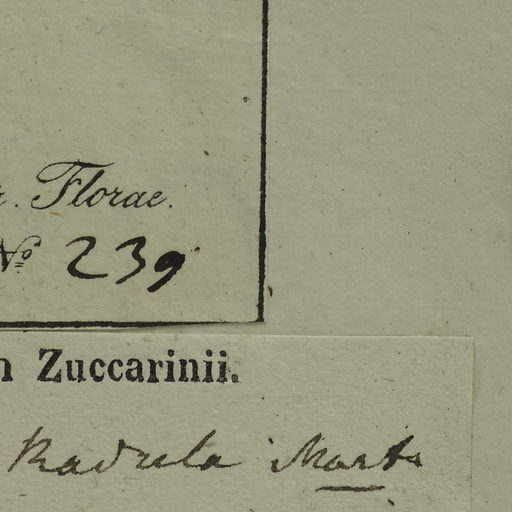 . Florae.
No 239
n Zuccarinii.
Radula Mart